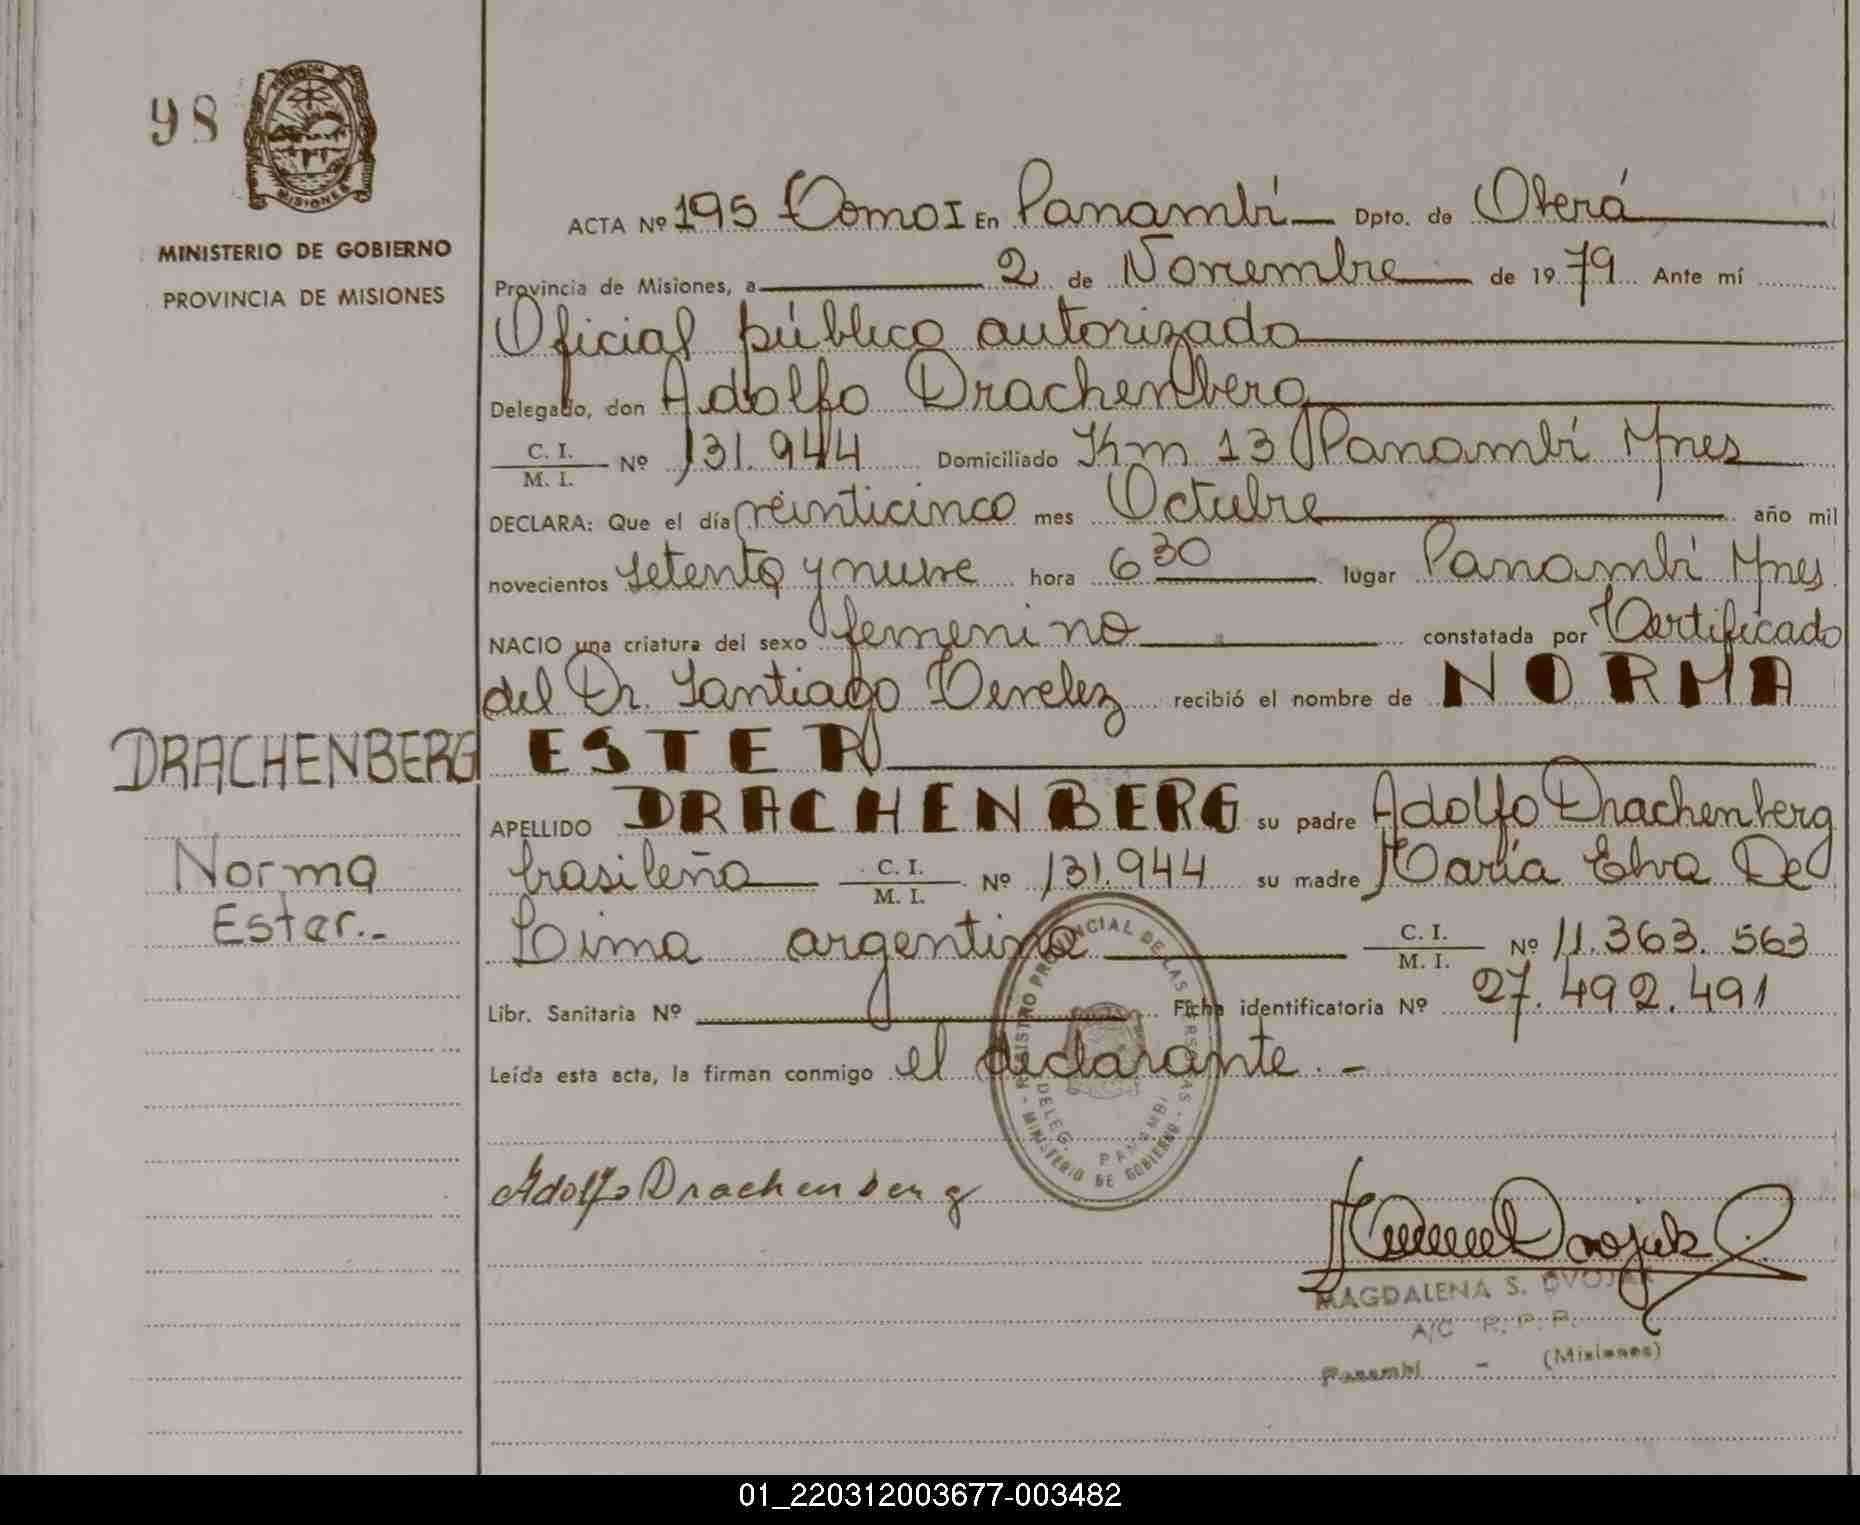 98
MISIONES
MINISTERIO DE GOBIERNO
PROVINCIA DE MISIONES
DRACHENBERG
Norma
Ester.-
ACTA Nº 195 Tomo I En Panambí Dpto. de Oberá
Provincia de Misiones, a 2 de Noviembre de 1979 Ante mí
Oficial público autorizado
Delegado, don Adolfo Drachenberg
C. I.
M. I. Nº 131.944 Domiciliado Km 13 Panambí Mnes
DECLARA: Que el día veinticinco mes Octubre año mil
novecientos setenta y nueve hora 6 30 lugar Panambí Mnes
NACIO una criatura del sexo femenino constatada por Certificado
del Dr. Santiago recibió el nombre de NORMA
ESTER
APELLIDO DRACHENBERG su padre Adolfo Drachenberg
brasileña C. I. M. I. Nº 131.944 su madre María Elva De
Lima argentina C. I. M. I. Nº 11.363.563
Libr. Sanitaria Nº Ficha identificatoria Nº 27.492.491
Leída esta acta, la firman conmigo el declarante.-
REGISTRO PROVINCIAL DE LAS PERSONAS - MINISTERIO DE GOBIERNO -
DELEG. PANAMBI
Adolfo Drachenberg
MAGDALENA S. DVOJAK
A/C R. P. P.
Panambí - (Misiones)
01_220312003677-003482